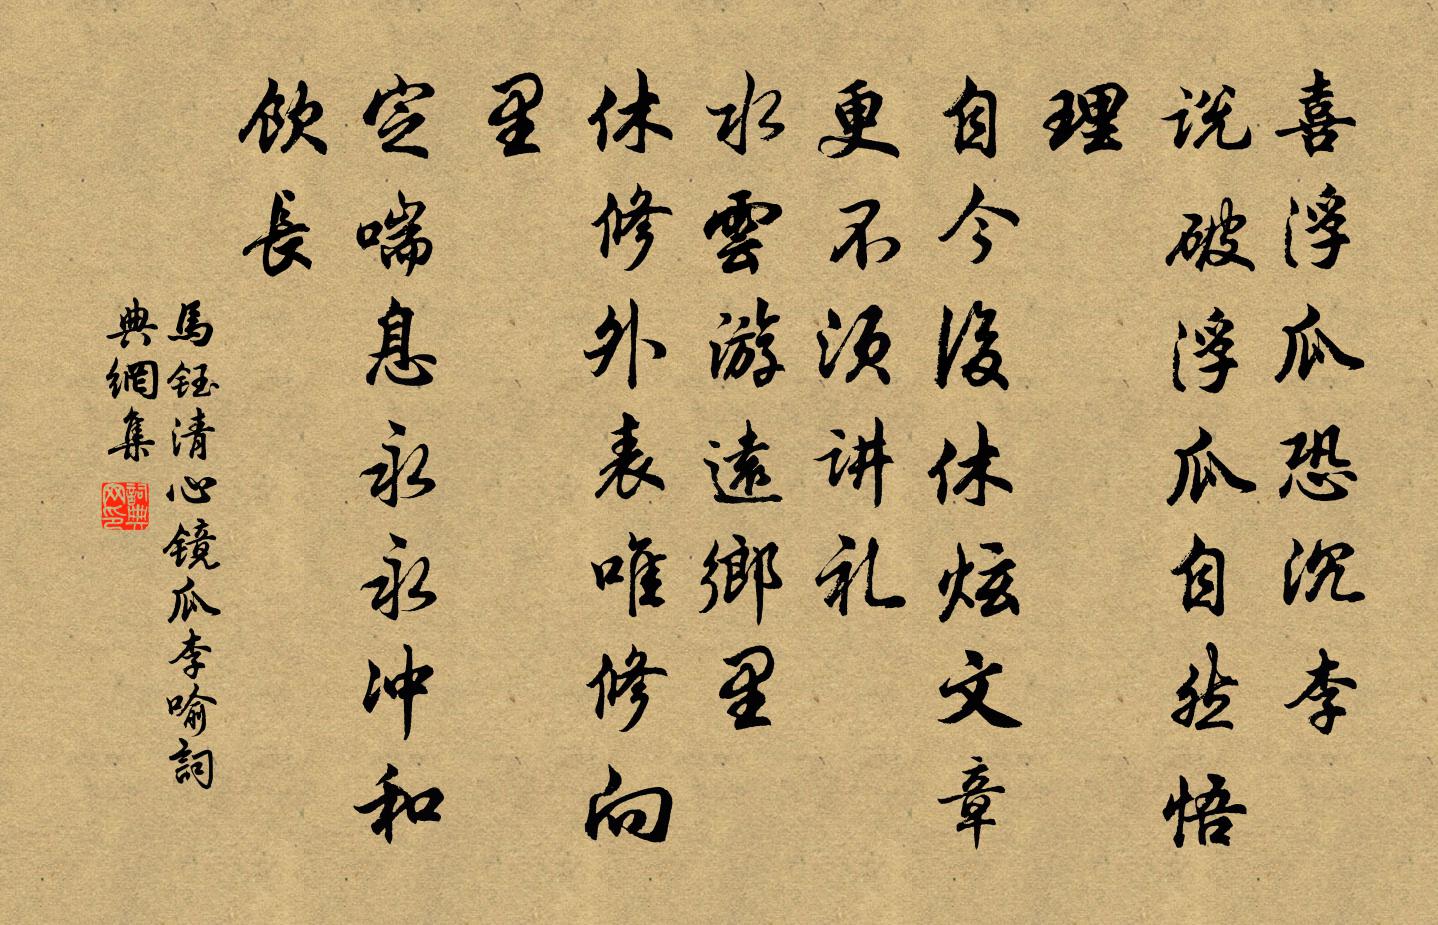 喜浮瓜恐沉李
说破浮瓜自然悟
理
自今後休炫文章
更不须讲礼
水雲游遠鄉里
休修外表唯修向
里
定喘息永永冲和
飲長
馬钰清心镜瓜李喻詞
典網集
詞典
网印